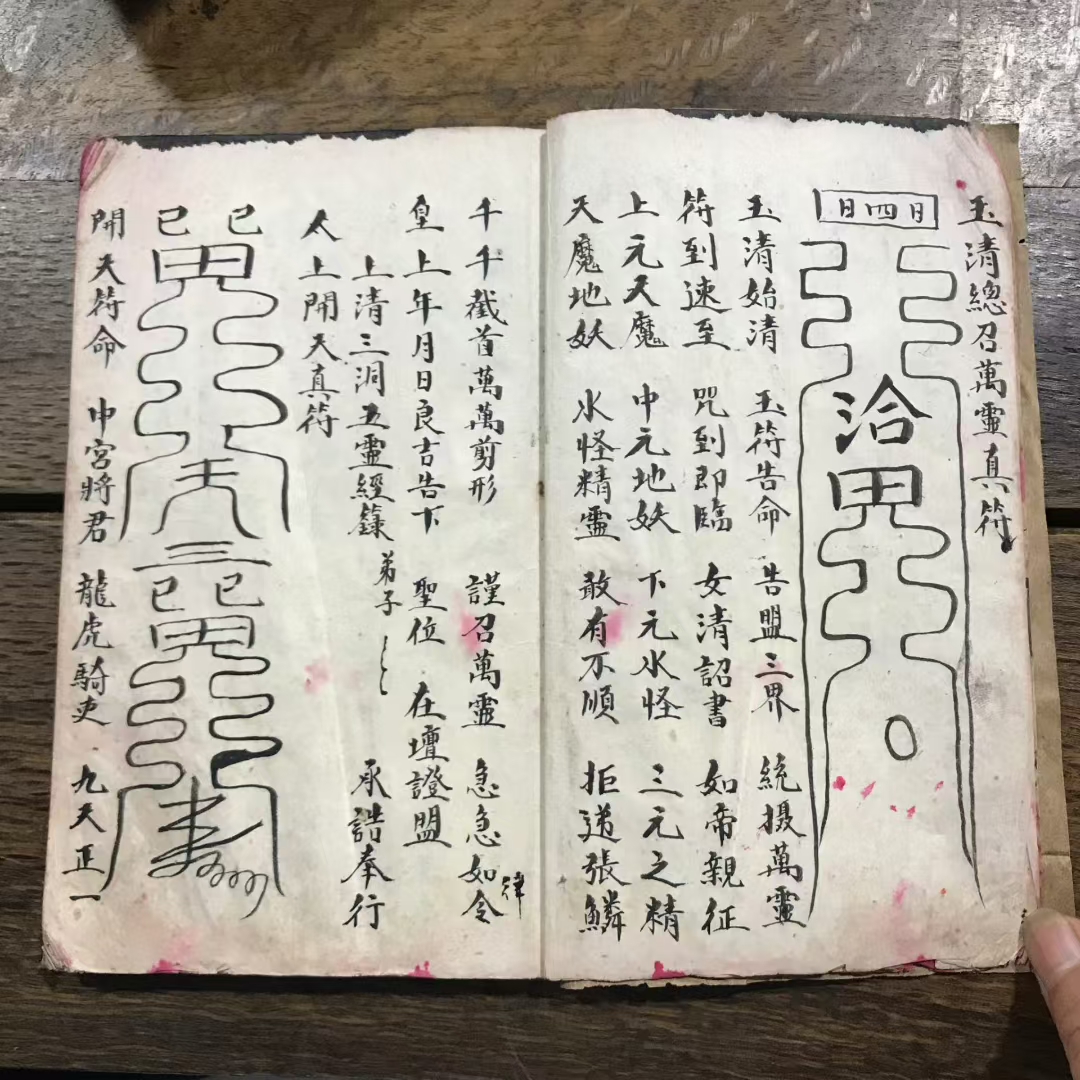 玉清總召萬靈真符
日四日
治
玉清始清 玉符告命 告盟三界 統摄萬靈
符到速至 咒到即臨 女清詔書 如帝親征
上元天魔 中元地妖 下元水怪 三元之精
天魔地妖 水怪精靈 敢有不順 拒逆張鱗
千千截首萬萬剪形 謹召萬靈 急急如律令
皇上年月日良吉告下 聖位 在壇證盟
上清三洞五靈經籙 弟子 承誥奉行
太上開天真符
開天符命 中宮將君 龍虎騎吏 九天正一